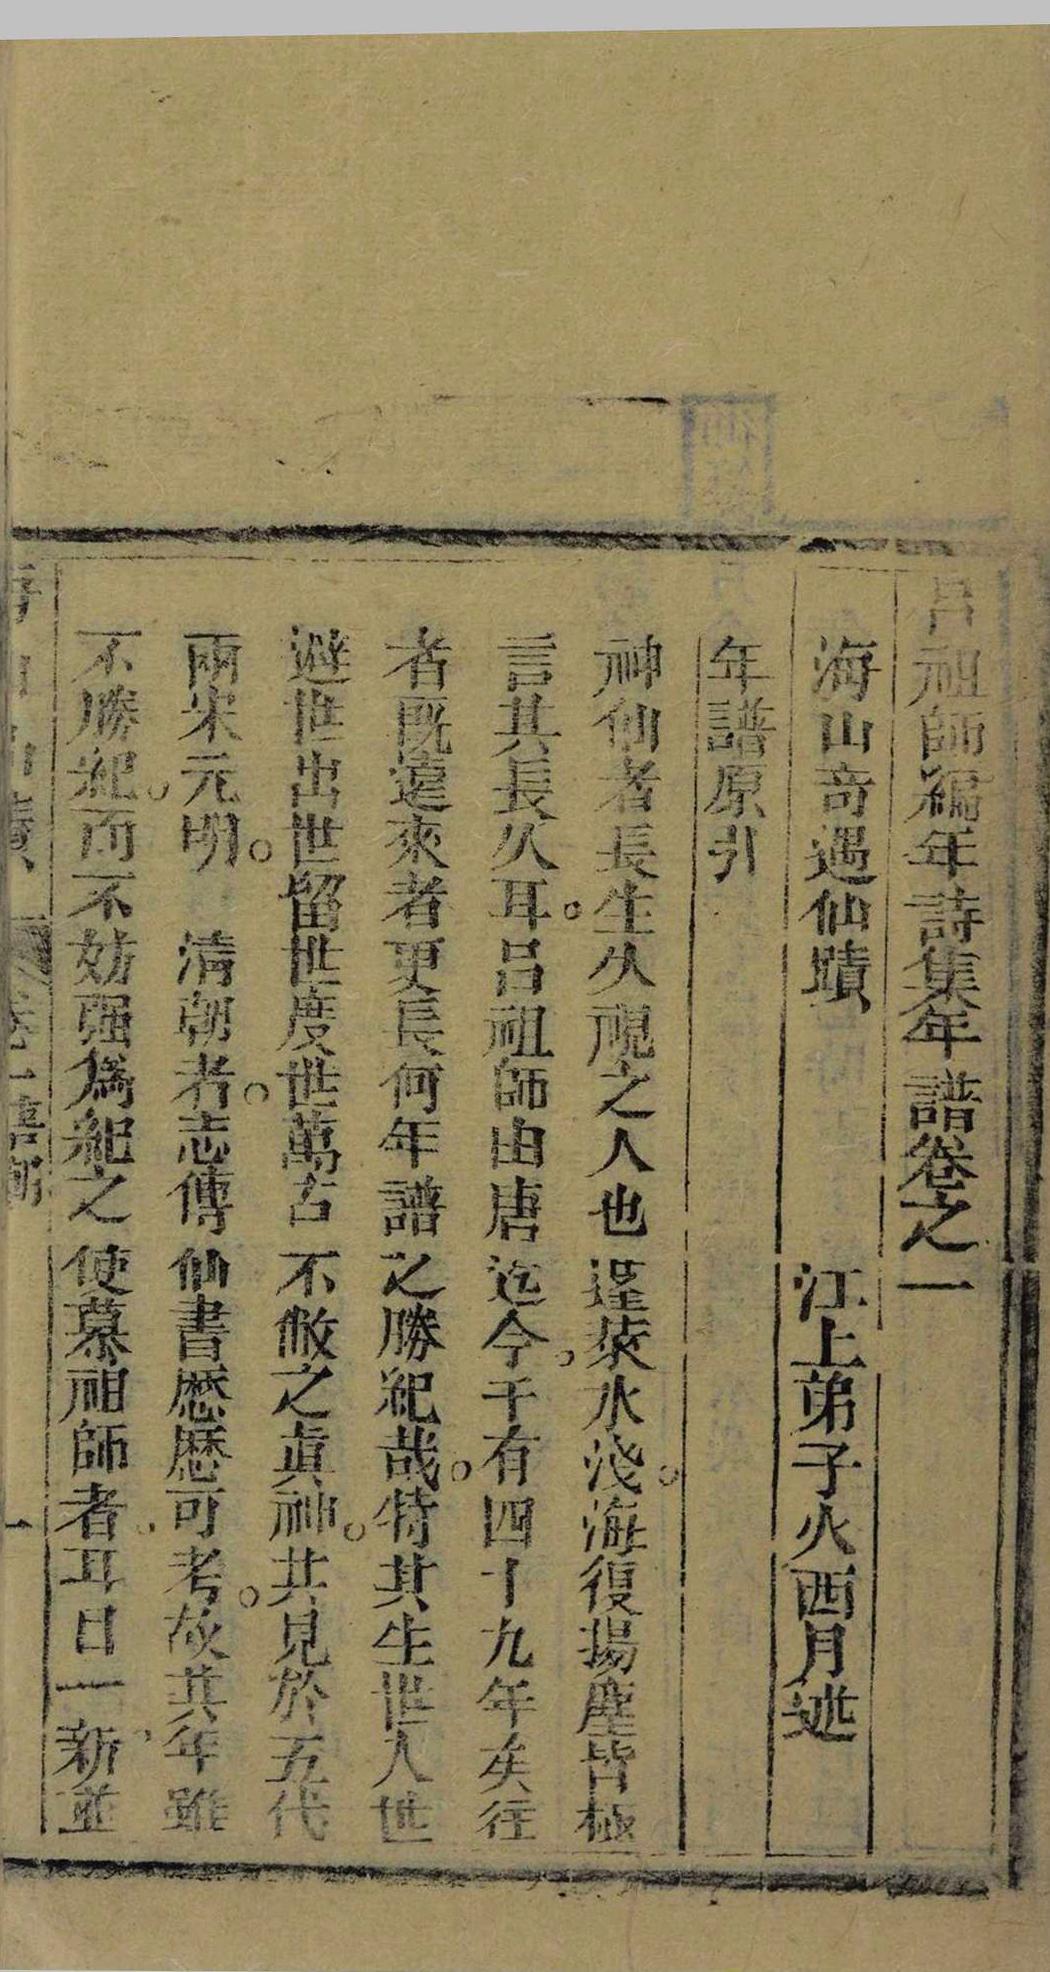 呂祖師編年詩集年譜卷之一
海山奇遇仙蹟 江上弟子火西月述
年譜原引
神仙者長生久視之人也蓬萊水淺。海復揚塵皆極
言其長久耳。呂祖師由唐迄今。千有四十九年矣往
者既遠來者更長何年譜之勝紀哉。特其生世人世
避世出世留世度世萬古不敝之眞神。其見於五代
兩宋元明。 清朝者。志傳仙書歷歷可考。故其年雖
不勝紀。而不妨强爲紀之使慕祖師者。耳目一新。並